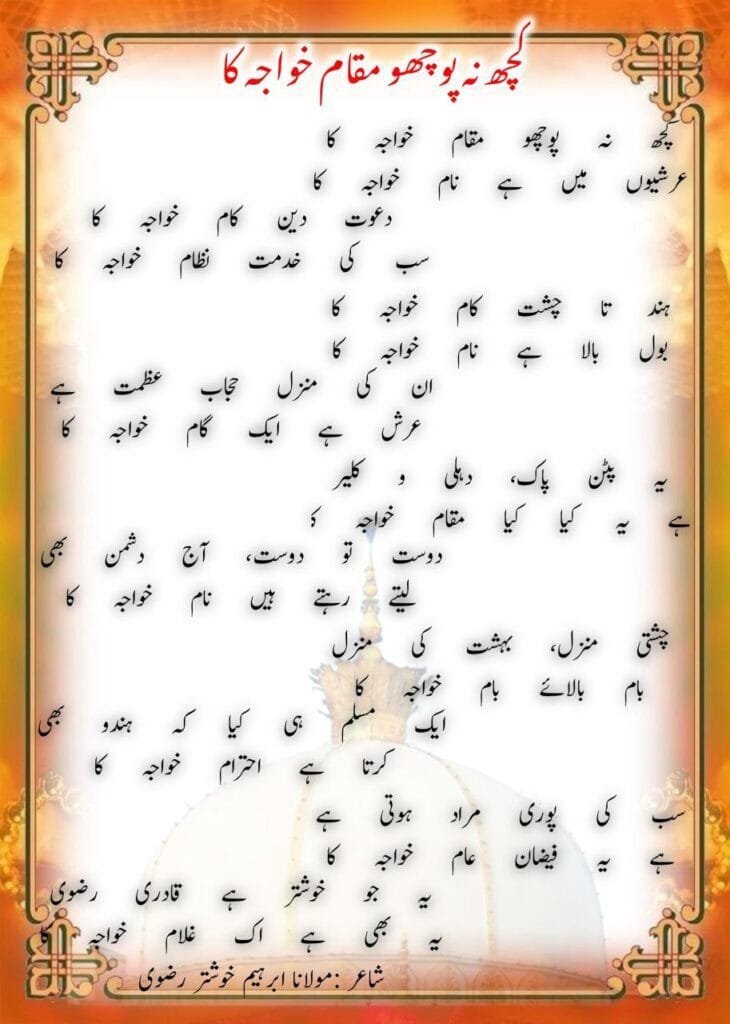 کچھ نہ پوچھو مقام خواجہ کا
کچھ نہ پوچھو مقام خواجہ کا
عرشیوں میں ہے نام خواجہ کا
دعوت دین کام خواجہ کا
سب کی خدمت نظام خواجہ کا
ہند تا چشت کام خواجہ کا
بول بالا ہے نام خواجہ کا
ان کی منزل حجاب عظمت ہے
عرش ہے ایک گام خواجہ کا
یہ پٹن پاک، دہلی و کلیر
ہے یہ کیا کیا مقام خواجہ کا
دوست تو دوست، آج دشمن بھی
لیتے رہتے ہیں نام خواجہ کا
چشتی منزل، بہشت کی منزل
بام بالائے بام خواجہ کا
ایک مسلم ہی کیا کہ ہندو بھی
کرتا ہے احترام خواجہ کا
سب کی پوری مراد ہوتی ہے
ہے یہ فیضان عام خواجہ کا
یہ جو خوشتر ہے قادری رضوی
یہ بھی ہے اک غلام خواجہ کا
شاعر :مولانا ابرہیم خوشتر رضوی